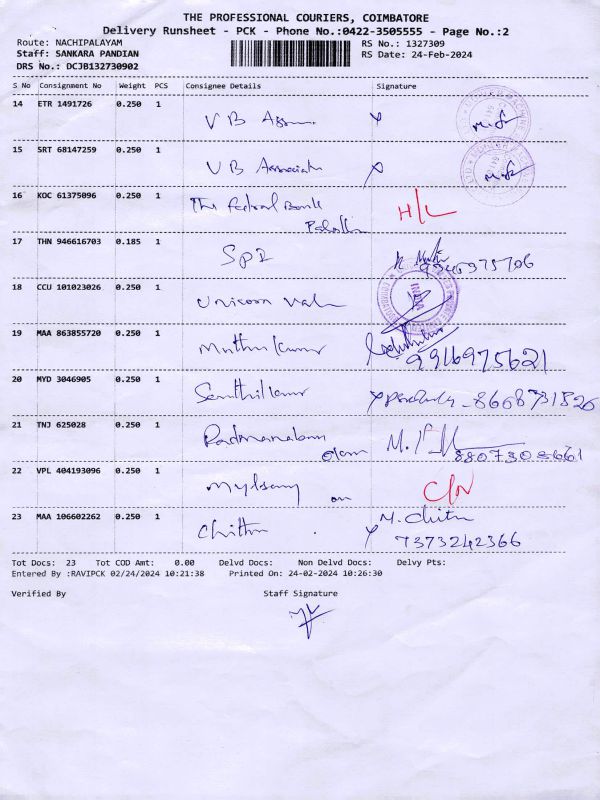 THE PROFESSIONAL COURIERS, COIMBATORE
Delivery Runsheet - PCK - Phone No.:0422-3505555 - Page No.:2
Route: NACHIPALAYAM RS No.: 1327309
Staff: SANKARA PANDIAN RS Date: 24-Feb-2024
DRS No.: DCJB132730902
S No Consignment No Weight PCS Consignee Details Signature
14 ETR 1491726 0.250 1 V B
15 SRT 68147259 0.250 1 V B Associate
16 KOC 61375096 0.250 1 The Federal Bank H/L
17 THN 946616703 0.185 1 SPI
18 CCU 101023026 0.250 1 Unicorn Valve
19 MAA 863855720 0.250 1 Muthukumar 9916975621
20 MYD 3046905 0.250 1 Senthilkumar 8668731826
21 TNJ 625028 0.250 1 Padmanaban
22 VPL 404193096 0.250 1
23 MAA 106602262 0.250 1 Chithra M. Chitra
7373242366
Tot Docs: 23 Tot COD Amt: 0.00 Delvd Docs: Non Delvd Docs: Delvy Pts:
Entered By :RAVIPCK 02/24/2024 10:21:38 Printed On: 24-02-2024 10:26:30
Verified By Staff Signature